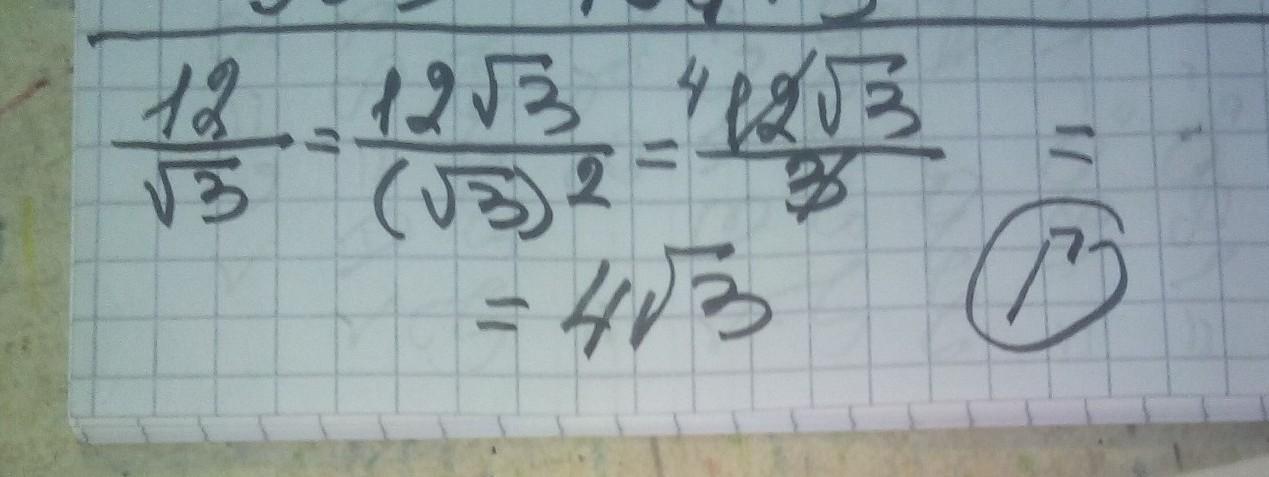 12/√3 = 12√3/(√3)² = 4 12√3/3 =
= 4√3 Г